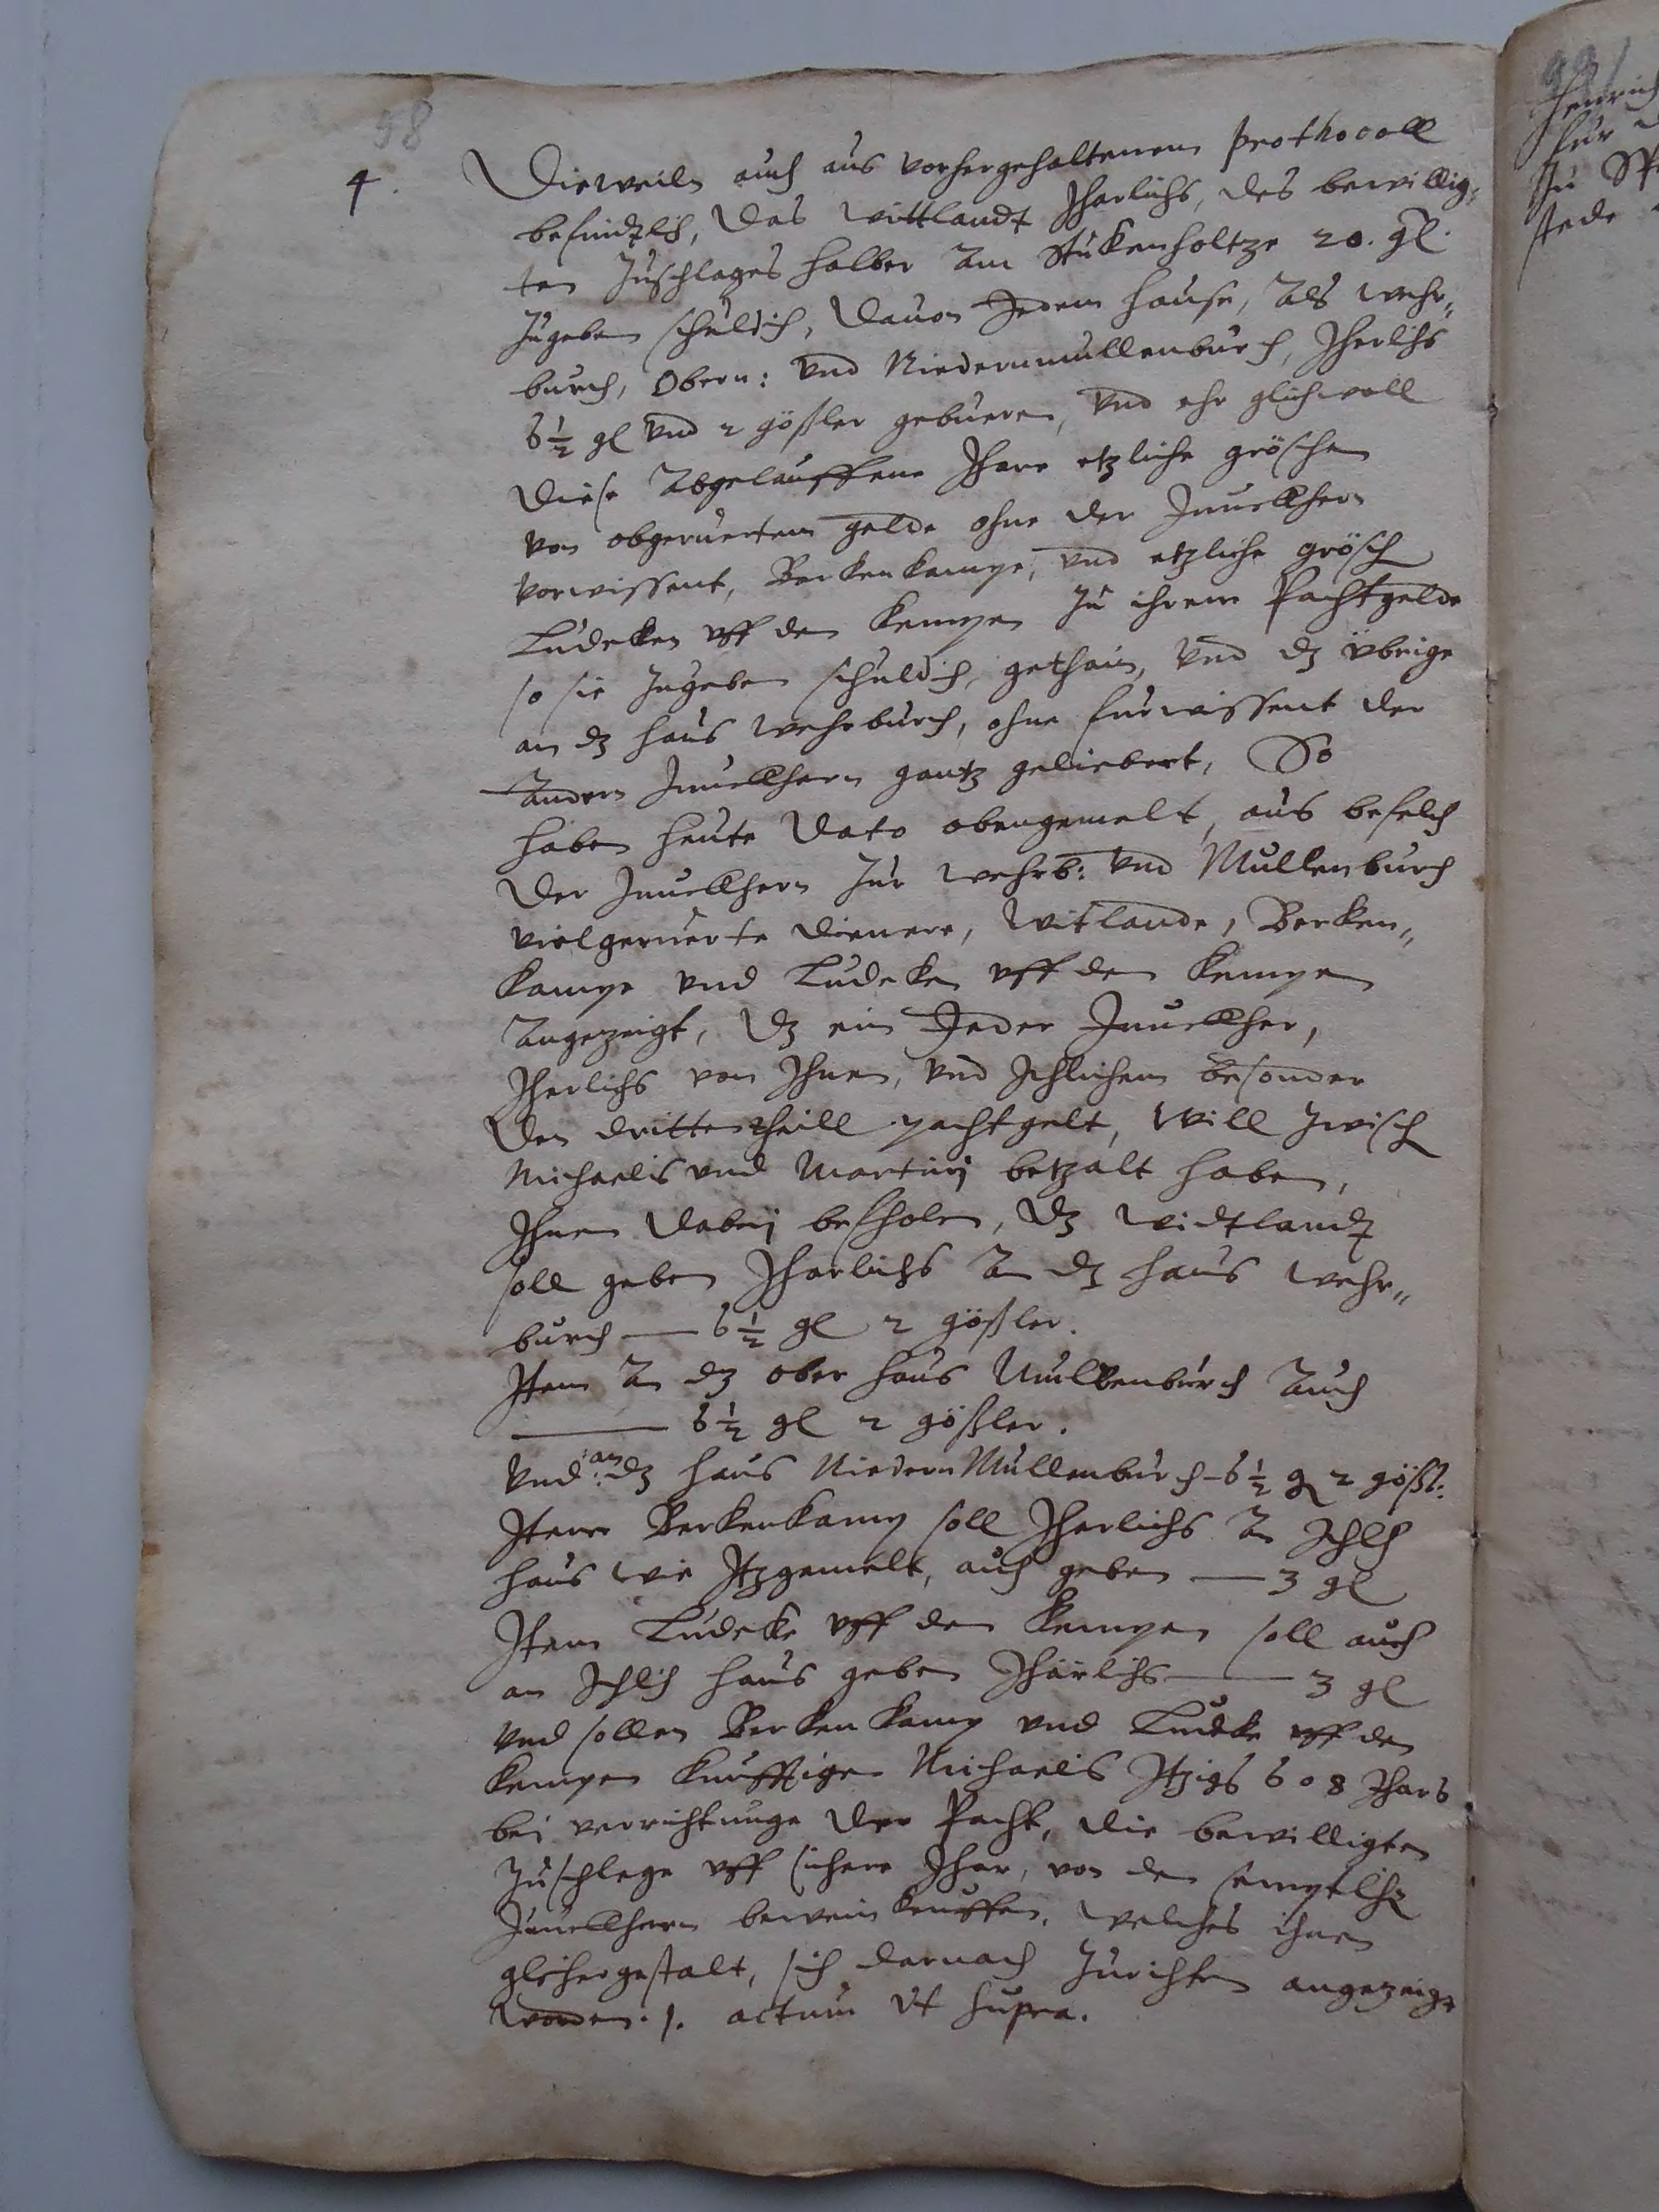 98
4. Dieweiln auch aus vorhergehaltenem prothocoll
befindtlich, das wittlandt Jharlichs, des bewillig„
ten Zuschlages halber Am Stuckenholtze 20. gl.
Zugeben schuldich, dauon Jedem hause, Als wehr„
burch, Obern: vnd Niedernmullenburch, Jherlichs
6½ gl vnd 2 gößler gebueren, vnd ehr glichwoll
diese Abgelauffene Jhare etzliche gröschen
von obgeruertem gelde ohne der Junckhern
vorwissent, Berkenkampe, vnd etzliche grösch
Ludecken vff den Kempen zu ihrem Pachtgelde
so sie Zugeben schuldich, gethain, vnd dz vbrige
an dz haus wehrburch, ohne furwissent der
Andern Junckhern gantz geliebert, So
haben heute Dato obengemelt, aus befelch
der Junckhern Zur wehrb: vnd Mullenburch
vielgeruerte dienere, Witlande, Berken„
kampe vnd Ludecken vff den Kempen
Angezeigt, dz ein Jeder Junckher,
Jherlichs von Jhnen, vnd Jchlichem besonder
den drittentheill pachtgelt, will Zwisch
Michaelis vnd Martinj betzalt haben,
Jhnen dabeij befholen, dz widtlandt
soll geben Jharlichs An dz haus wehr„
burch — 6½ gl 2 gößler.
Item An dz ober haus Mullenburch Auch
— 6½ gl 2 gößler.
Vnd an dz haus Niedern Mullenburch – 6½ g 2 gößl:
Item Berkenkamp soll Jherlichs An Jchlich
haus wie Jtzgemelt, auch geben — 3 gl
Item Ludecke vff den Kempen soll auch
an Jchlich haus geben Jhärlichs — 3 gl
Vnd sollen Berkenkamp vnd Ludeke vff den
Kempen kunfftigen Michaelis Jtzigs 608 Jhars
bei verrichtunge der Pacht, die bewilligten
Zuschlege vff sichere Jhar, von den semptlich
Junckhern bewein keuffen, welches ihnen
glichergestalt, sich darnach Zurichten angezeigt
worden. /. actum vt supra.